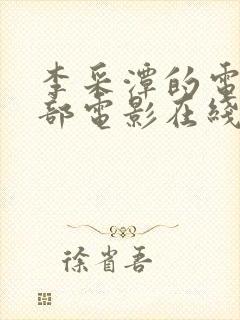 李采潭的電
部電影在綫
徐省吾